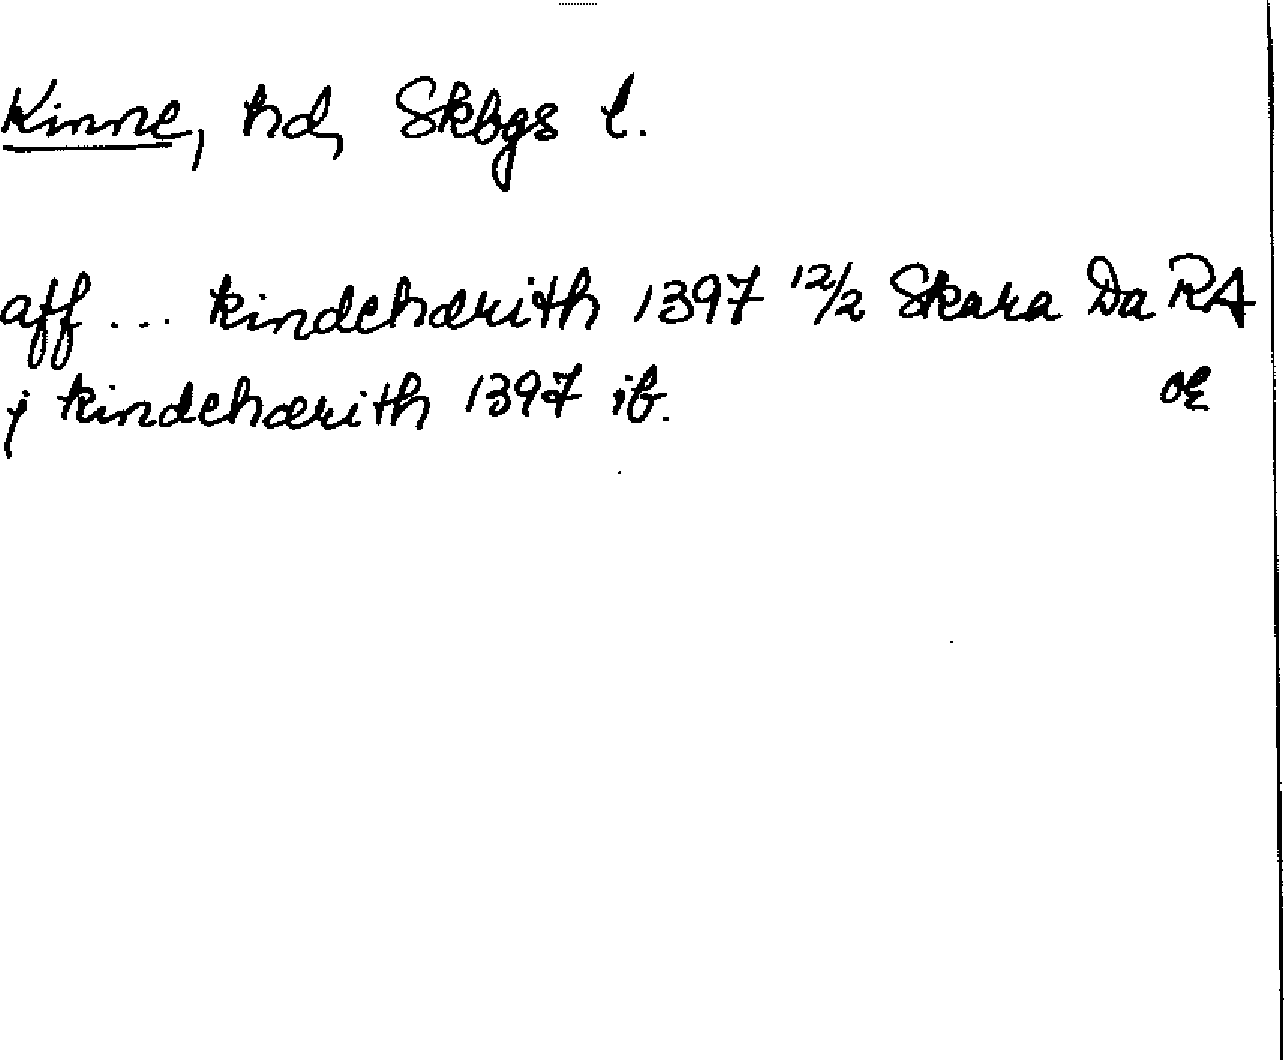 Kinne, hd, Skbgs l.
aff ... kindehærith 1397 12/2 Skara Da RA
j kindehærith 1397 ib. OE